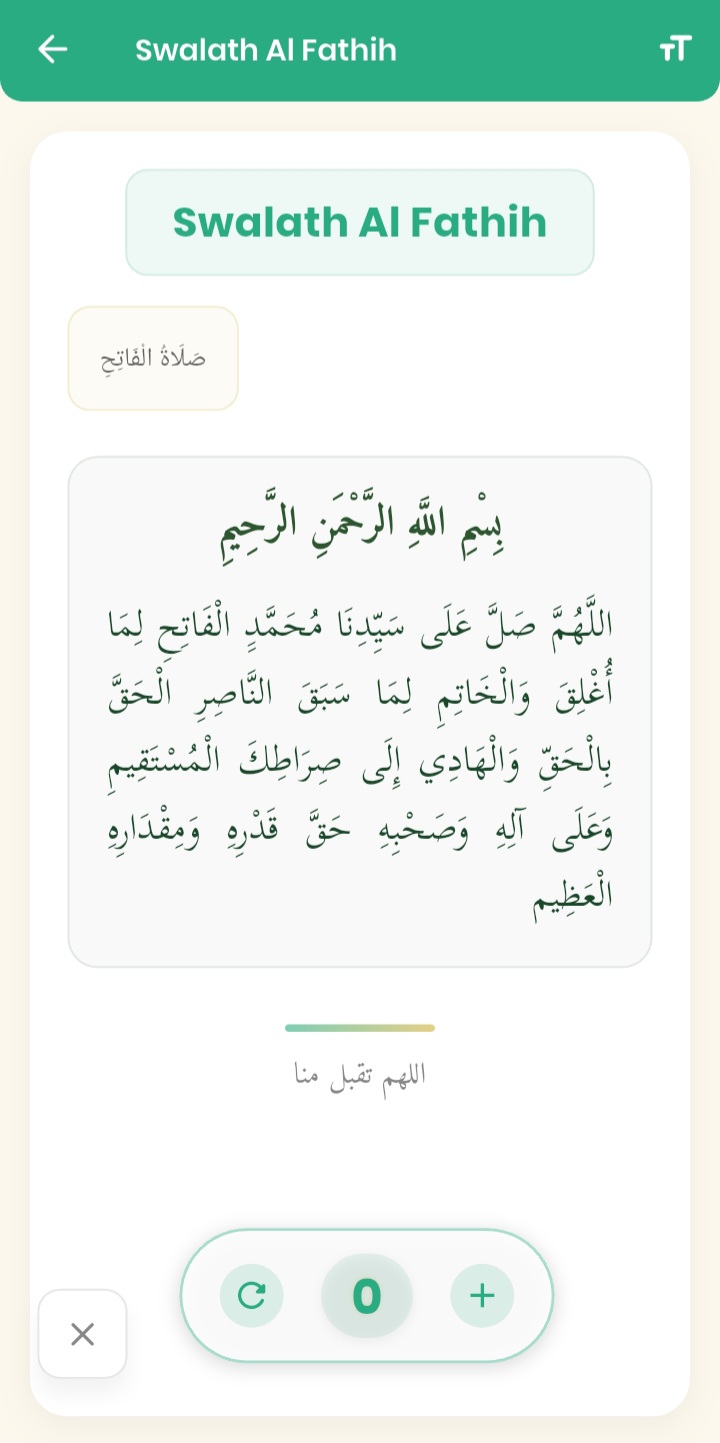 Swalath Al Fathih
Swalath Al Fathih
صَلَاةُ الْفَاتِحِ
بِسْمِ اللَّهِ الرَّحْمَنِ الرَّحِيمِ
اللَّهُمَّ صَلَّ عَلَى سَيِّدِنَا مُحَمَّدٍ الْفَاتِحِ لِمَا
أُغْلِقَ وَالْخَاتِمِ لِمَا سَبَقَ النَّاصِرِ الْحَقَّ
بِالْحَقِّ وَالْهَادِي إِلَى صِرَاطِكَ الْمُسْتَقِيمِ
وَعَلَى آلِهِ وَصَحْبِهِ حَقَّ قَدْرِهِ وَمِقْدَارِهِ
الْعَظِيم
اللهم تقبل منا
0